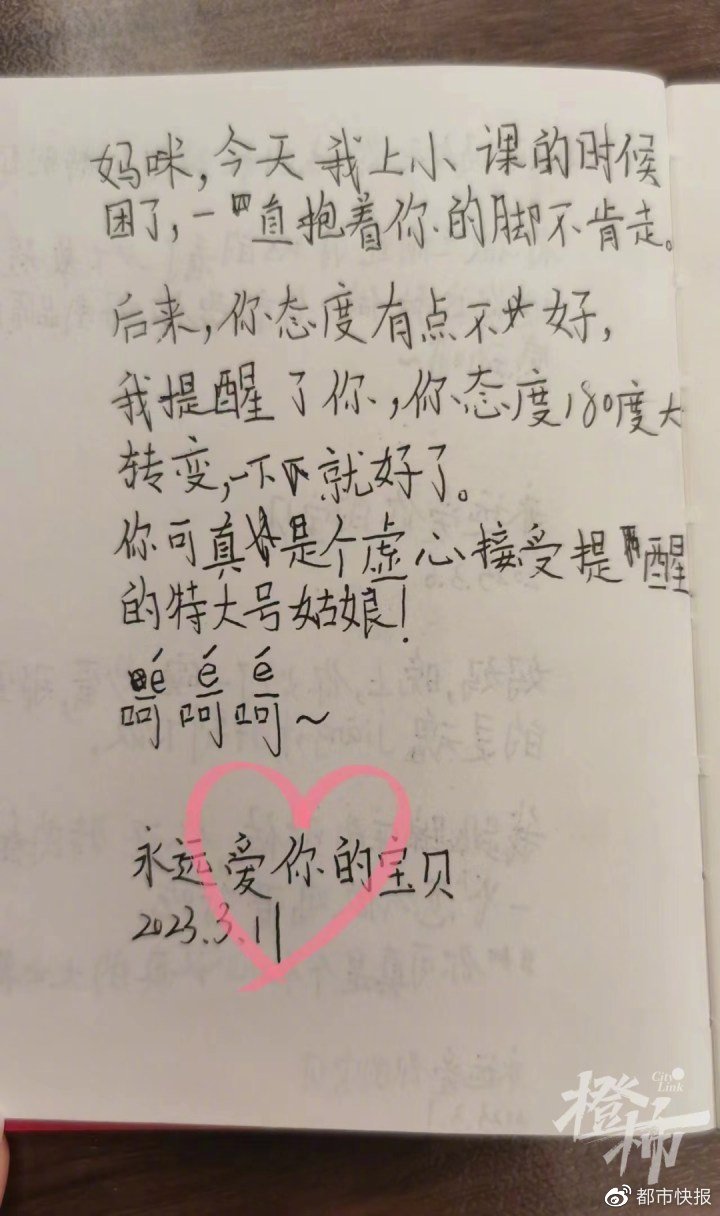 妈咪,今天我上小课的时候
困了,一直抱着你的脚不肯走。
后来,你态度有点不好,
我提醒了你,你态度180度大
转变,一下就好了。
你可真是个虚心接受提醒
的特大号姑娘!
é é é
呵呵呵~
永远爱你的宝贝
2023.3.11
City Link
橙柿
都市快报